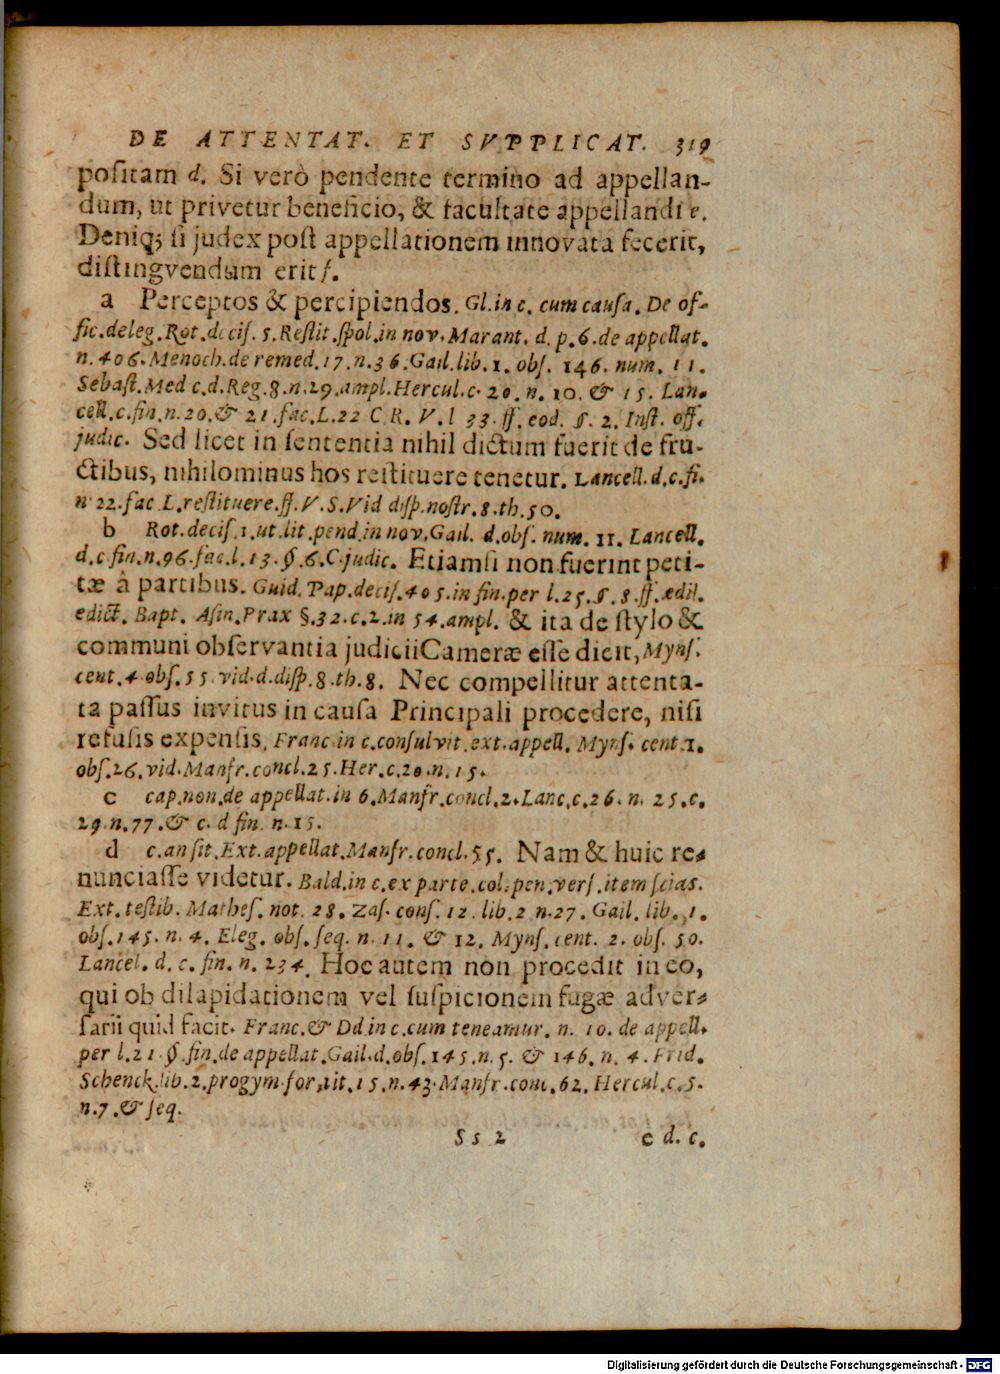 DE ATTENTAT. ET SVPPLICAT. 319
poſitam d. Si verò pendente termino ad appellan-
dum, ut privetur beneficio, & facultate appellandi e.
Deniq; ſi judex poſt appellationem innovata fecerit,
diſtingvendum erit f.
a Perceptos & percipiendos. Gl. in c. cum cauſa. De of-
fic. deleg. Rot. deciſ. 5. Reſtit. ſpol. in nov. Marant. d. p. 6. de appellat.
n. 406. Menoch. de remed. 17. n. 36. Gail. lib. 1. obſ. 146. num. 11.
Sebaſt. Med c. d. Reg. 8. n. 29. ampl. Hercul. c. 20. n. 10. & 15. Lan-
cell. c. fin. n. 20. & 21. fac. L. 22 C R. V. l 33. ff. eod. §. 2. Inſt. off.
judic. Sed licet in ſententia nihil dictum fuerit de fru-
ctibus, nihilominus hos reſtituere tenetur. Lancell. d. c. fi.
n. 22. fac L. reſtituere. ff. V. S. Vid diſp. noſtr. 8. th. 50.
b Rot. deciſ. 1. ut lit. pend. in nov. Gail. d. obſ. num. 11. Lancell.
d. c. fin. n. 96. fac. l. 13. §. 6. C. judic. Etiamſi non fuerint peti-
tæ â partibus. Guid. Pap. deciſ. 405. in fin. per l. 25. §. 8. ff. ædil.
edict. Bapt. Aſin. Prax §. 32. c. 2. in 54. ampl. & ita de ſtylo &
communi obſervantia judicii Cameræ eſſe dicit, Mynſ.
cent. 4. obſ. 55. vid. d. diſp. 8. th. 8. Nec compellitur attenta-
ta paſſus invitus in cauſa Principali procedere, niſi
refuſis expenſis. Franc in c. conſulvit. ext. appell. Mynſ. cent. 1.
obſ. 26. vid. Manfr. concl. 25. Her. c. 20. n. 15.
c cap. non. de appellat. in 6. Manfr. concl. 2. Lanc. c. 26. n. 25. c.
29. n. 77. & c. d fin. n. 15.
d c. an ſit. Ext. appellat. Manfr. concl. 55. Nam & huic re-
nunciaſſe videtur. Bald. in c. ex parte. col. pen. verſ. item ſcias.
Ext. teſtib. Matheſ. not. 28. Zaſ. conſ. 12. lib. 2 n. 27. Gail. lib. 1.
obſ. 145. n. 4. Eleg. obſ. ſeq. n. 11. & 12. Mynſ. cent. 2. obſ. 50.
Lancel. d. c. fin. n. 234. Hoc autem non procedit in eo,
qui ob dilapidationem vel ſuſpicionem fugæ adver-
ſarii quid facit. Franc. & Dd in c. cum teneamur. n. 10. de appell.
per l. 21. §. fin. de appellat. Gail. d. obſ. 145. n. 5. & 146. n. 4. Frid.
Schenck. lib. 2. progym. for. tit. 15. n. 43. Manfr. conc. 62. Hercul. c. 5.
n. 7. & ſeq.
Ss 2 e d. c.
Digitalisierung gefördert durch die Deutsche Forschungsgemeinschaft - DFG